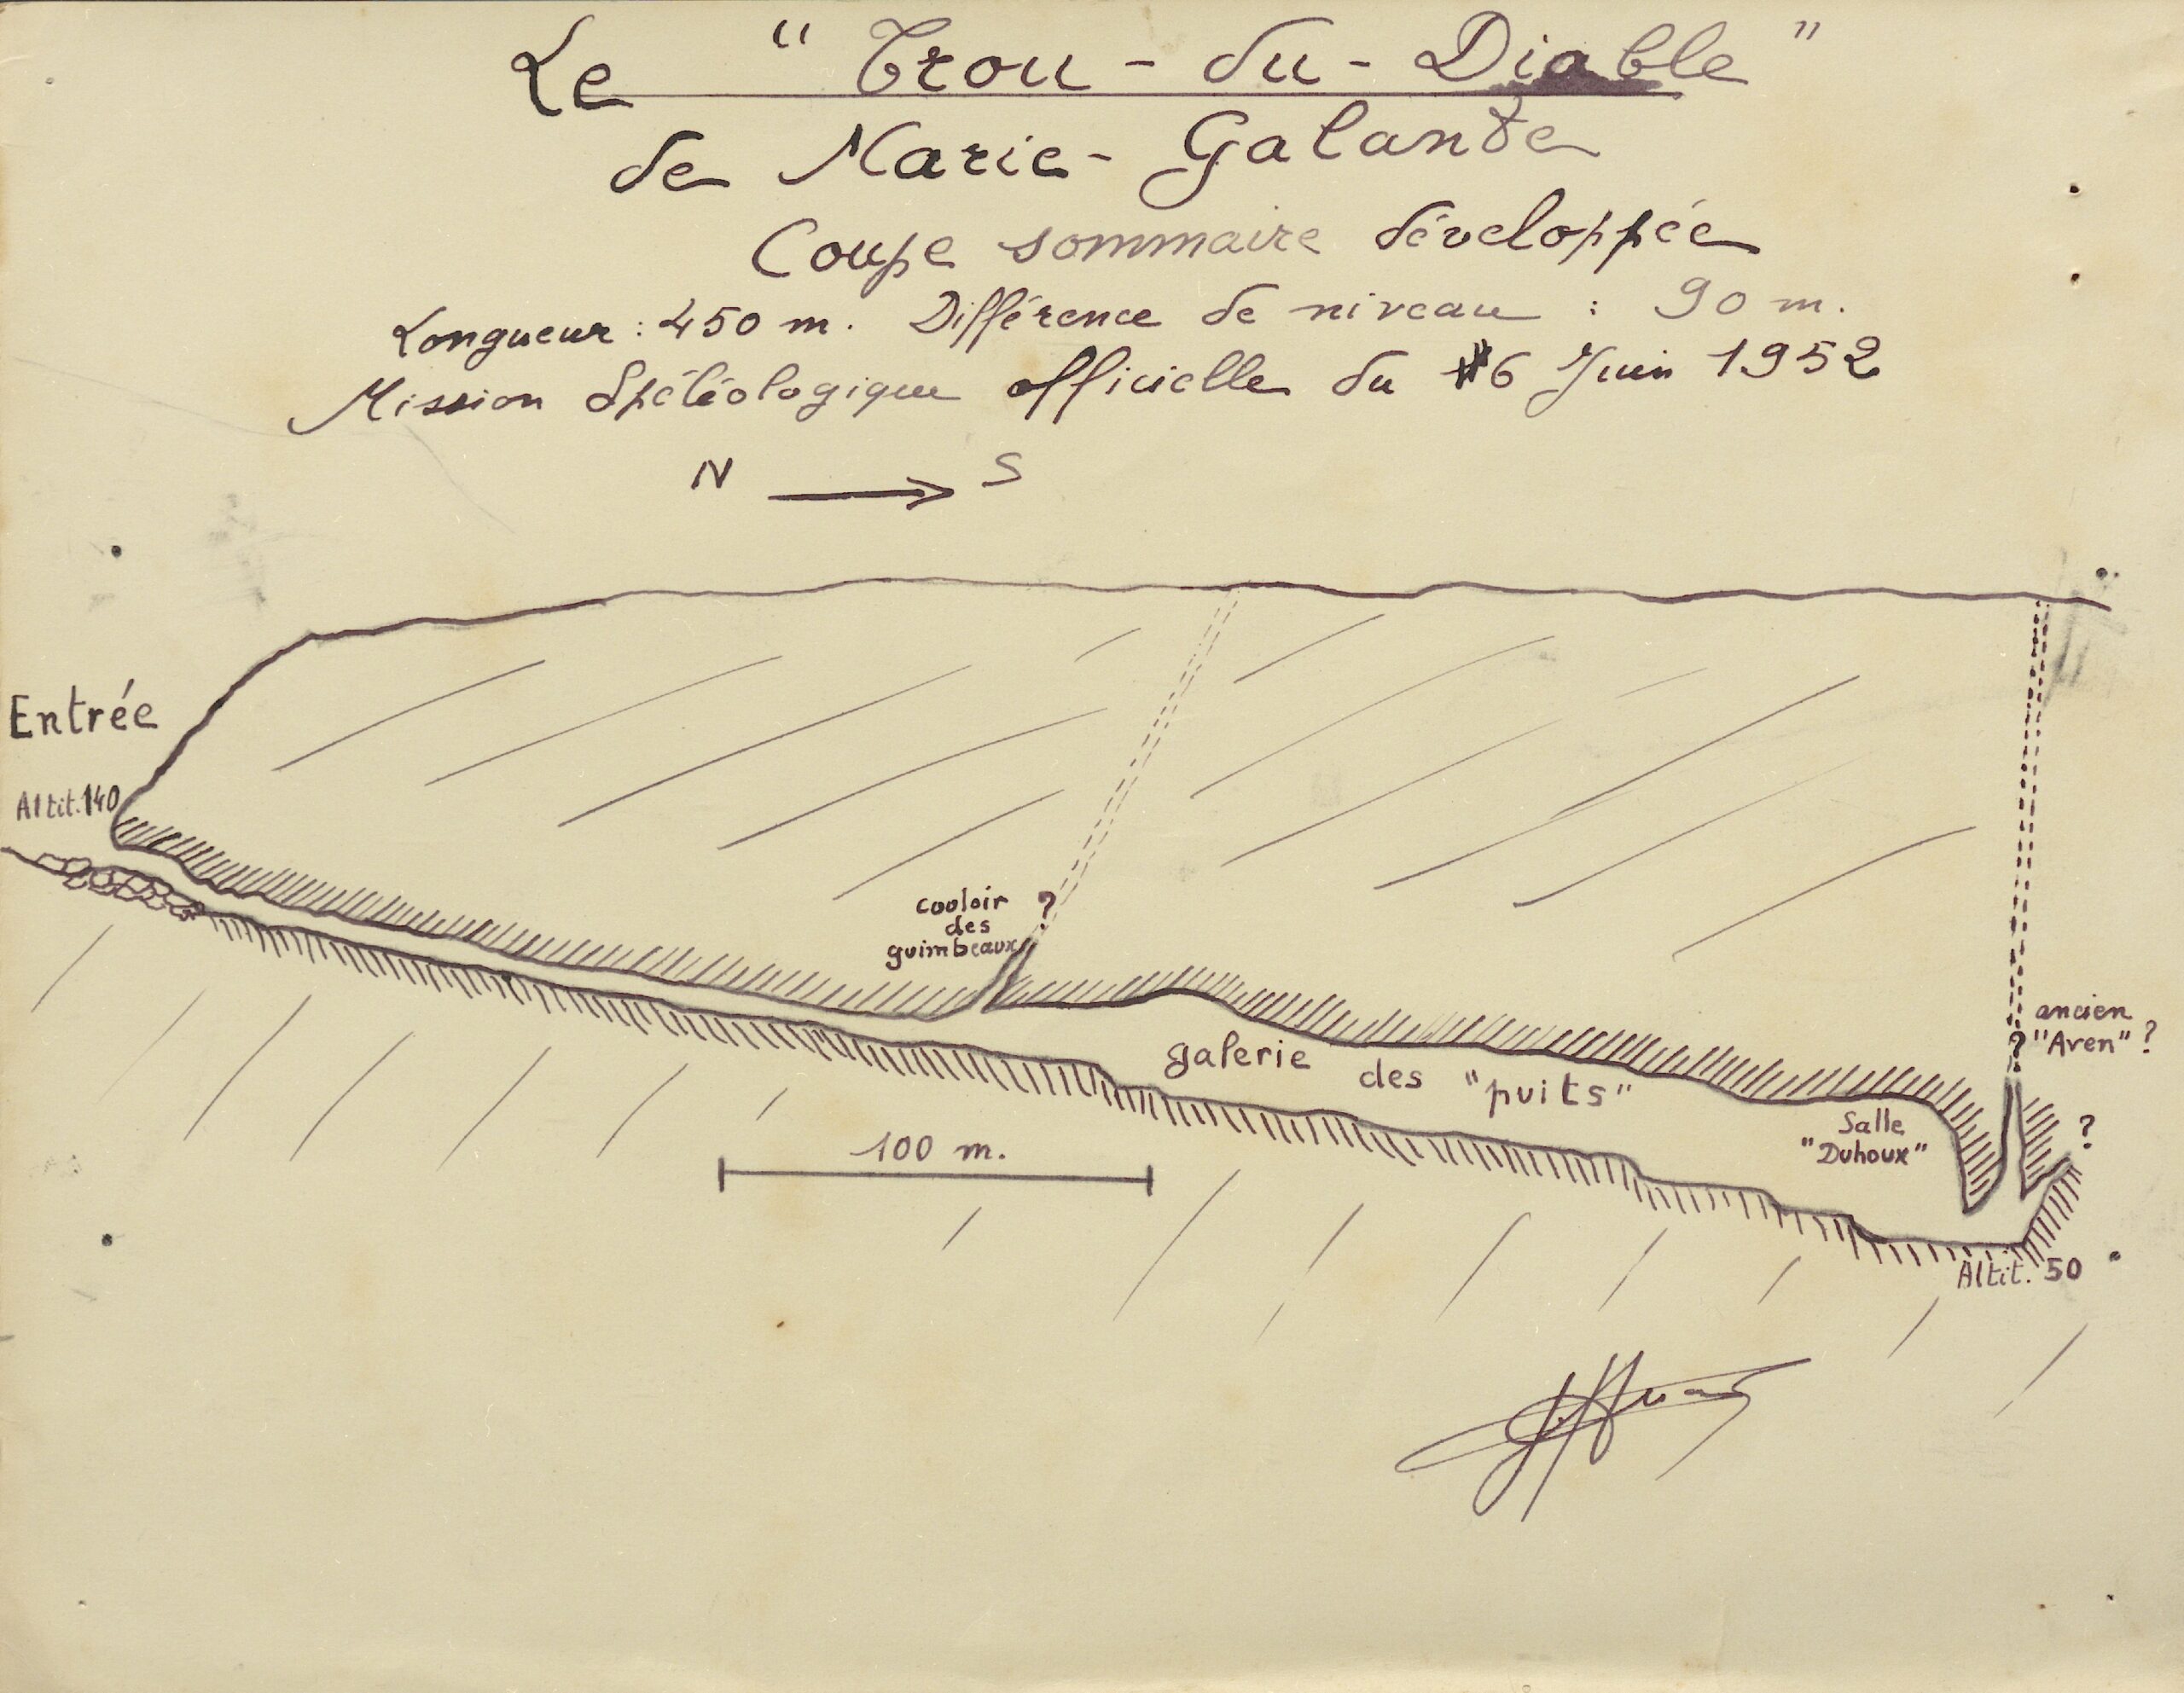 Le "Trou-du-Diable"
de Marie-Galante
Coupe sommaire développée
Longueur : 450 m. Différence de niveau : 90 m.
Mission Spéléologique officielle du 6 Juin 1952
N S
Entrée
Altit. 140
couloir
des
guimbeaux
?
galerie des "puits"
ancien
? "Aven" ?
Salle
"Duhoux"
?
100 m.
Altit. 50